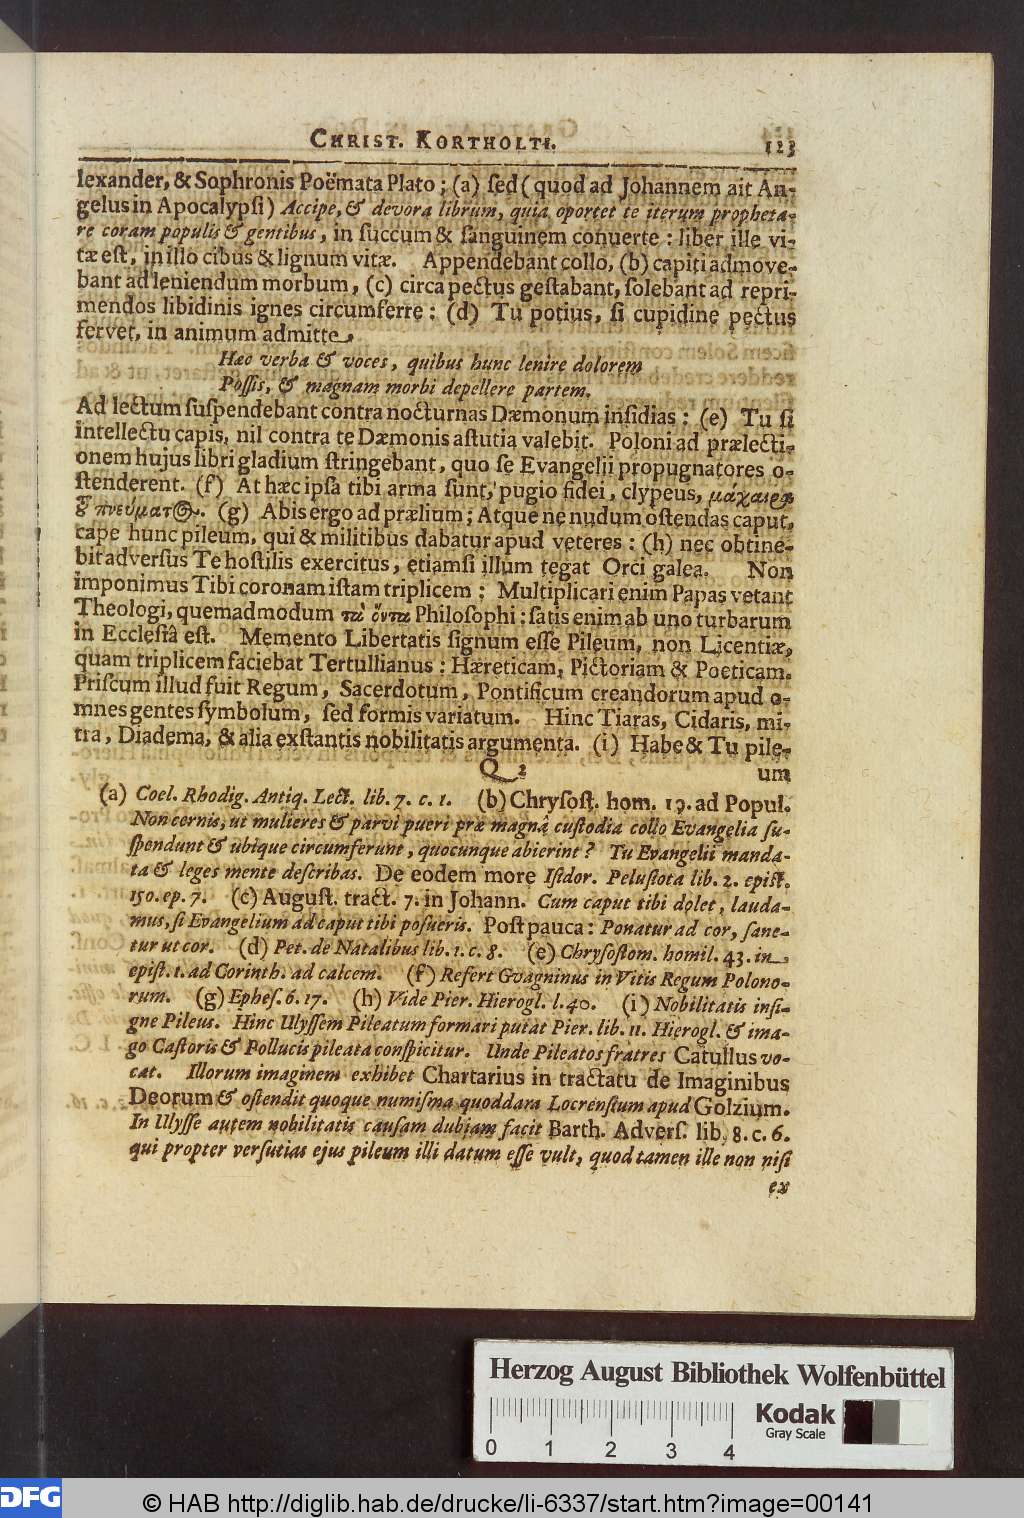 CHRIST. KORTHOLTI. 123
lexander, & Sophronis Poëmata Plato; (a) ſed (quod ad Johannem ait An-
gelus in Apocalypſi) Accipe, & devora librum, quia oportet te iterum propheta-
re coram populis & gentibus, in ſuccum & ſanguinem conuerte: liber ille vi-
tæ eſt, in illo cibus & lignum vitæ. Appendebant collo, (b) capiti admove-
bant ad leniendum morbum, (c) circa pectus geſtabant, ſolebant ad repri-
mendos libidinis ignes circumferre: (d) Tu potius, ſi cupidine pectus
fervet, in animum admitte,
Hæc verba & voces, quibus hunc lenire dolorem
Poſſis, & magnam morbi depellere partem.
Ad lectum ſuſpendebant contra nocturnas Dæmonum inſidias: (e) Tu ſi
intellectu capis, nil contra te Dæmonis aſtutia valebit. Poloni ad prælecti-
onem hujus libri gladium ſtringebant, quo ſe Evangelii propugnatores o-
ſtenderent. (f) At hæc ipſa tibi arma ſunt, pugio fidei, clypeus, μάχαιρα
πνεύματ. (g) Abis ergo ad prælium; Atque ne nudum oſtendas caput,
cape hunc pileum, qui & militibus dabatur apud veteres: (h) nec obtine-
bit adverſus Te hoſtilis exercitus, etiamſi illum tegat Orci galea. Non
imponimus Tibi coronam iſtam triplicem; Multiplicari enim Papas vetant
Theologi, quemadmodum τὰ ὄντα Philoſophi: ſatis enim ab uno turbarum
in Eccleſiâ eſt. Memento Libertatis ſignum eſſe Pileum, non Licentiæ,
quam triplicem faciebat Tertullianus: Hæreticam, Pictoriam & Poeticam.
Priſcum illud fuit Regum, Sacerdotum, Pontificum creandorum apud o-
mnes gentes ſymbolum, ſed formis variatum. Hinc Tiaras, Cidaris, mi-
tra, Diadema, & alia exſtantis nobilitatis argumenta. (i) Habe & Tu pile-
Q 2 um
(a) Coel. Rhodig. Antiq. Lect. lib. 7. c. 1. (b) Chryſoſt. hom. 19. ad Popul.
Non cernis, ut mulieres & parvi pueri præ magnâ cuſtodia collo Evangelia ſu-
ſpendunt & ubique circumferunt, quocunque abierint? Tu Evangelii manda-
ta & leges mente deſcribas. De eodem more Iſidor. Peluſiota lib. 2. epiſt.
150. ep. 7. (c) Auguſt. tract. 7. in Johann. Cum caput tibi dolet, lauda-
mus, ſi Evangelium ad caput tibi poſueris. Poſt pauca: Ponatur ad cor, ſane-
tur ut cor. (d) Pet. de Natalibus lib. 1. c. 8. (e) Chryſoſtom. homil. 43. in
epiſt. 1. ad Corinth. ad calcem. (f) Refert Gvagninus in Vitis Regum Polono-
rum. (g) Epheſ. 6. 17. (h) Vide Pier. Hierogl. l. 40. (i) Nobilitatis inſi-
gne Pileus. Hinc Ulyſſem Pileatum formari putat Pier. lib. 11. Hierogl. & ima-
go Caſtoris & Pollucis pileata conſpicitur. Unde Pileatos fratres Catullus vo-
cat. Illorum imaginem exhibet Chartarius in tractatu de Imaginibus
Deorum & oſtendit quoque numiſma quoddam Locrenſium apud Golzium.
In Ulyſſe autem nobilitatis cauſam dubiam facit Barth. Adverſ. lib. 8. c. 6.
qui propter verſutias ejus pileum illi datum eſſe vult, quod tamen ille non niſi
ex
Herzog August Bibliothek Wolfenbüttel
0 1 2 3 4
Kodak
Gray Scale
DFG
© HAB http://diglib.hab.de/drucke/li-6337/start.htm?image=00141